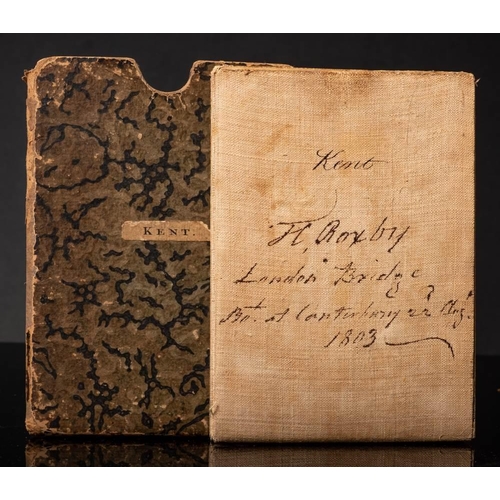 KENT.
Kent
H, Roxby
London Bridge
Bot. at Canterbury 22d Augt.
1803